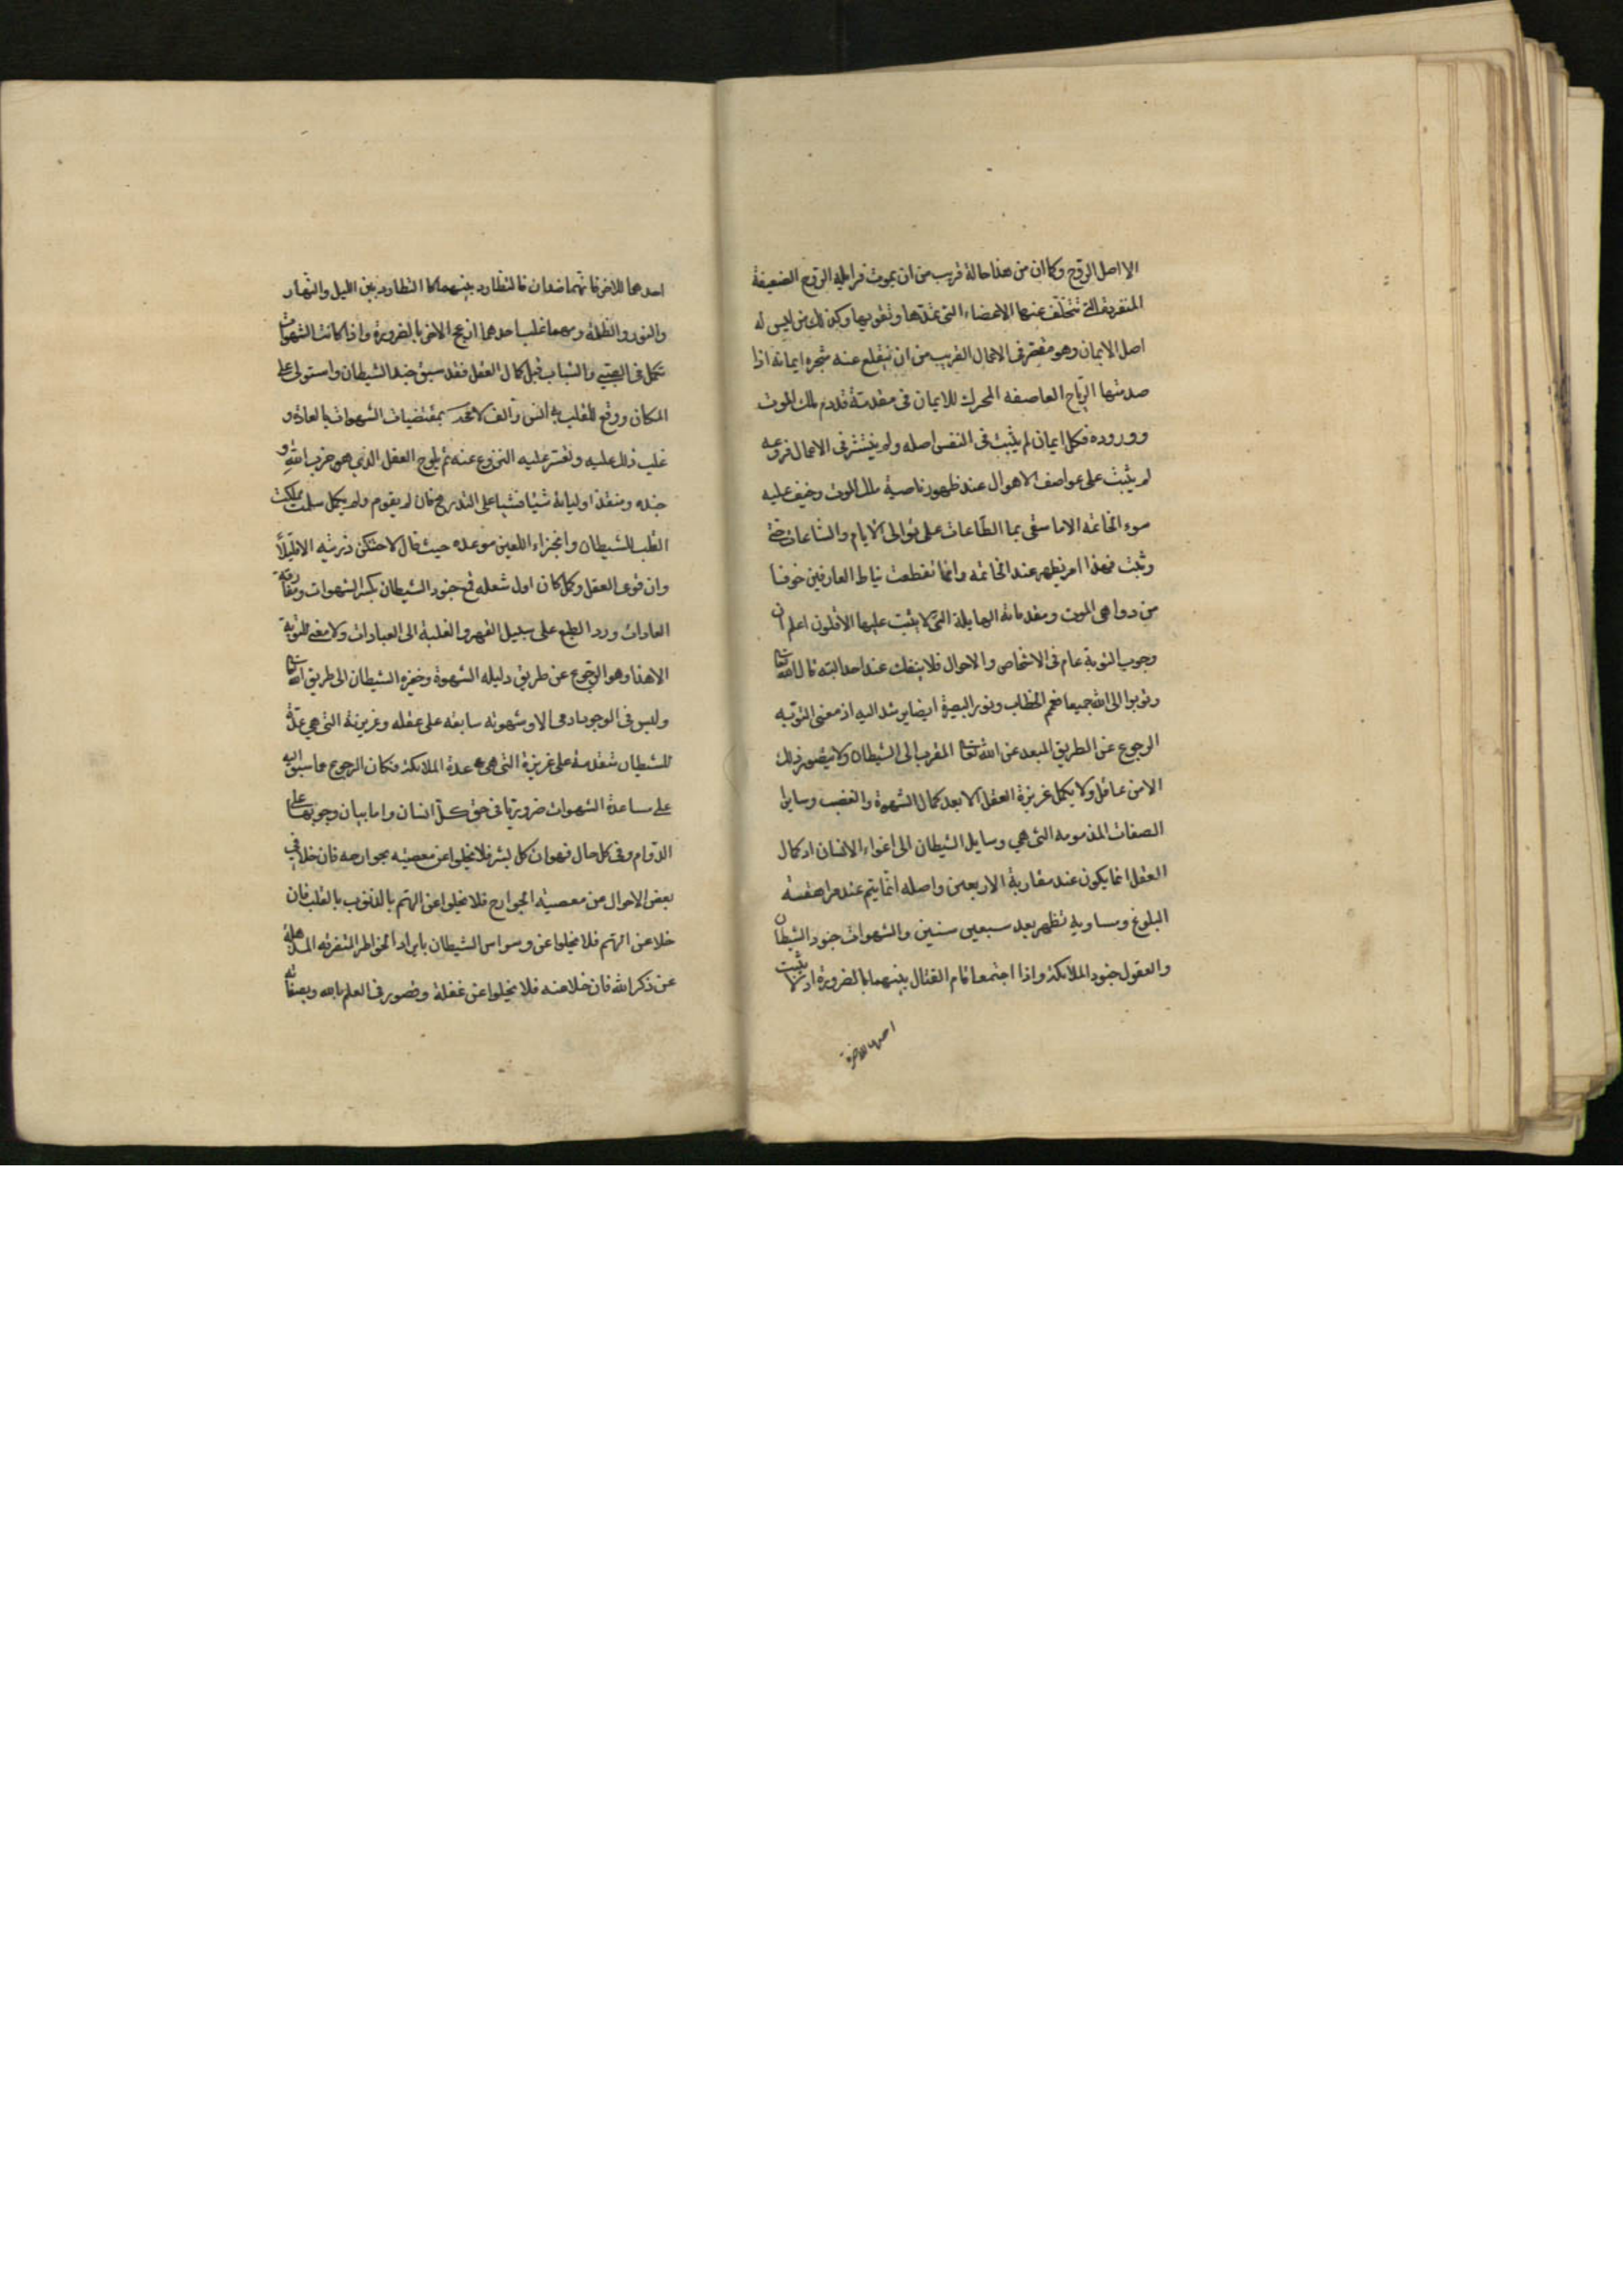 الا اصل الروح وكما ان من هذا حاله قريب من ان يموت فزايله الروح الضعيفة
المنفردة التي تتخلف عنها الاعضاء التي تمدها وتقويها وكذلك من ليس له
اصل الايمان وهو مقصر فى الاعمال القريب من ان ينقلع عنه شجره ايمانه اذا
صدمتها الرياح العاصفه المحرك للايمان فى مقدمة قدوم ملك الموت
ووروده فكل ايمان لم يثبت فى النفس اصله ولم ينتشر فى الاعمال فروعه
لم يثبت على عواصف الاهوال عند ظهور ناصية ملك الموت وخيف عليه
سوء الخاتمه الا ما سقى بما الطاعات على توالى الايام والساعات حتى
وثبت فهذا امر يظهر عند الخاتمه وانما تقطعت نياط العارفين خوفا
من دواهى الموت ومقدماته الهايلة التى لا يثبت عليها الاقلون اعلم ان
وجوب التوبة عام فى الاشخاص والاحوال فلا ينفك عنه احد البته قال الله تعالى
وتوبوا الى الله جميعا فعم الخطاب ونور البصيرة ايضا يرشد اليه اذ معنى التوبه
الرجوع عن الطريق المبعد عن الله تعالى المقرب الى الشيطان ولا يتصور ذلك
الا من عاقل ولا يكمل غريزة العقل الا بعد كمال الشهوة والغضب وساير
الصفات المذمومه التى هي وسايل الشيطان الى اغواء الانسان اذ كمال
العقل انما يكون عند مقاربة الاربعين واصله انما يتم عند مراهقته
البلوغ ومباديه تظهر بعد سبعين سنين والشهوات جنود الشيطان
والعقول جنود الملائكة واذا اجتمعا قام القتال بينهما بالضرورة اذ لا يثبت
احدهما للاخر
احدهما للاخر فانهما ضدان فالتطارد بينهما كالتطارد بين الليل والنهار
والنور والظلمة ومهما غلب احدهما ازعج الاخر بالضرورة واذا كانت الشهوات
تكمل فى الصبي والشباب قبل كمال العقل فقد سبق جند الشيطان واستولى على
المكان ووقع للقلب به انس والف لا محد بمقتضيات الشهوات بالعادة و
غلب ذلك عليه وتعسر عليه النزوع عنه ثم يلوح العقل الذي هو حزب الله و
جنده ومنقذ اوليائه شيئا فشيئا على التدريج فان لم يقوم ولم يكمل سلمت مملكت
القلب للشيطان وانجزاء اللعين موعده حيث قال لاحتنكن ذريته الا قليلا
وان قوى العقل وكمل كان اول شغله قمع جنود الشيطان بكسر الشهوات ومفارقة
العادات ورد الطبع على سبيل القهر والغلبة الى العبادات ولا معنى للتوبة
الا هذا وهو الرجوع عن طريق دليله الشهوة وخفيره الشيطان الى طريق الله تعالى
وليس فى الوجود ادمى الا وشهوته سابقه على عقله وغريزته التى هى عدة
للشيطان متقدمة على غريزة التى هى عدة الملائكة فكان الرجوع عما سبق اليه
على مساعدة الشهوات ضروريا فى حق كل انسان واما بيان وجوبها على
الدوام وفى كل حال فهو ان كل بشر فلا يخلوا عن معصيته بجوارحه فان خلا فى
بعض الاحوال من معصية الجوارح فلا يخلوا عن الهم بالذنوب بالقلب فان
خلا عن الهم فلا يخلوا عن وسواس الشيطان بايراد الخواطر المتفرقه المذهلة
عن ذكر الله فان خلا عنه فلا يخلوا عن غفلة وقصور فى العلم بالله وبصفاته